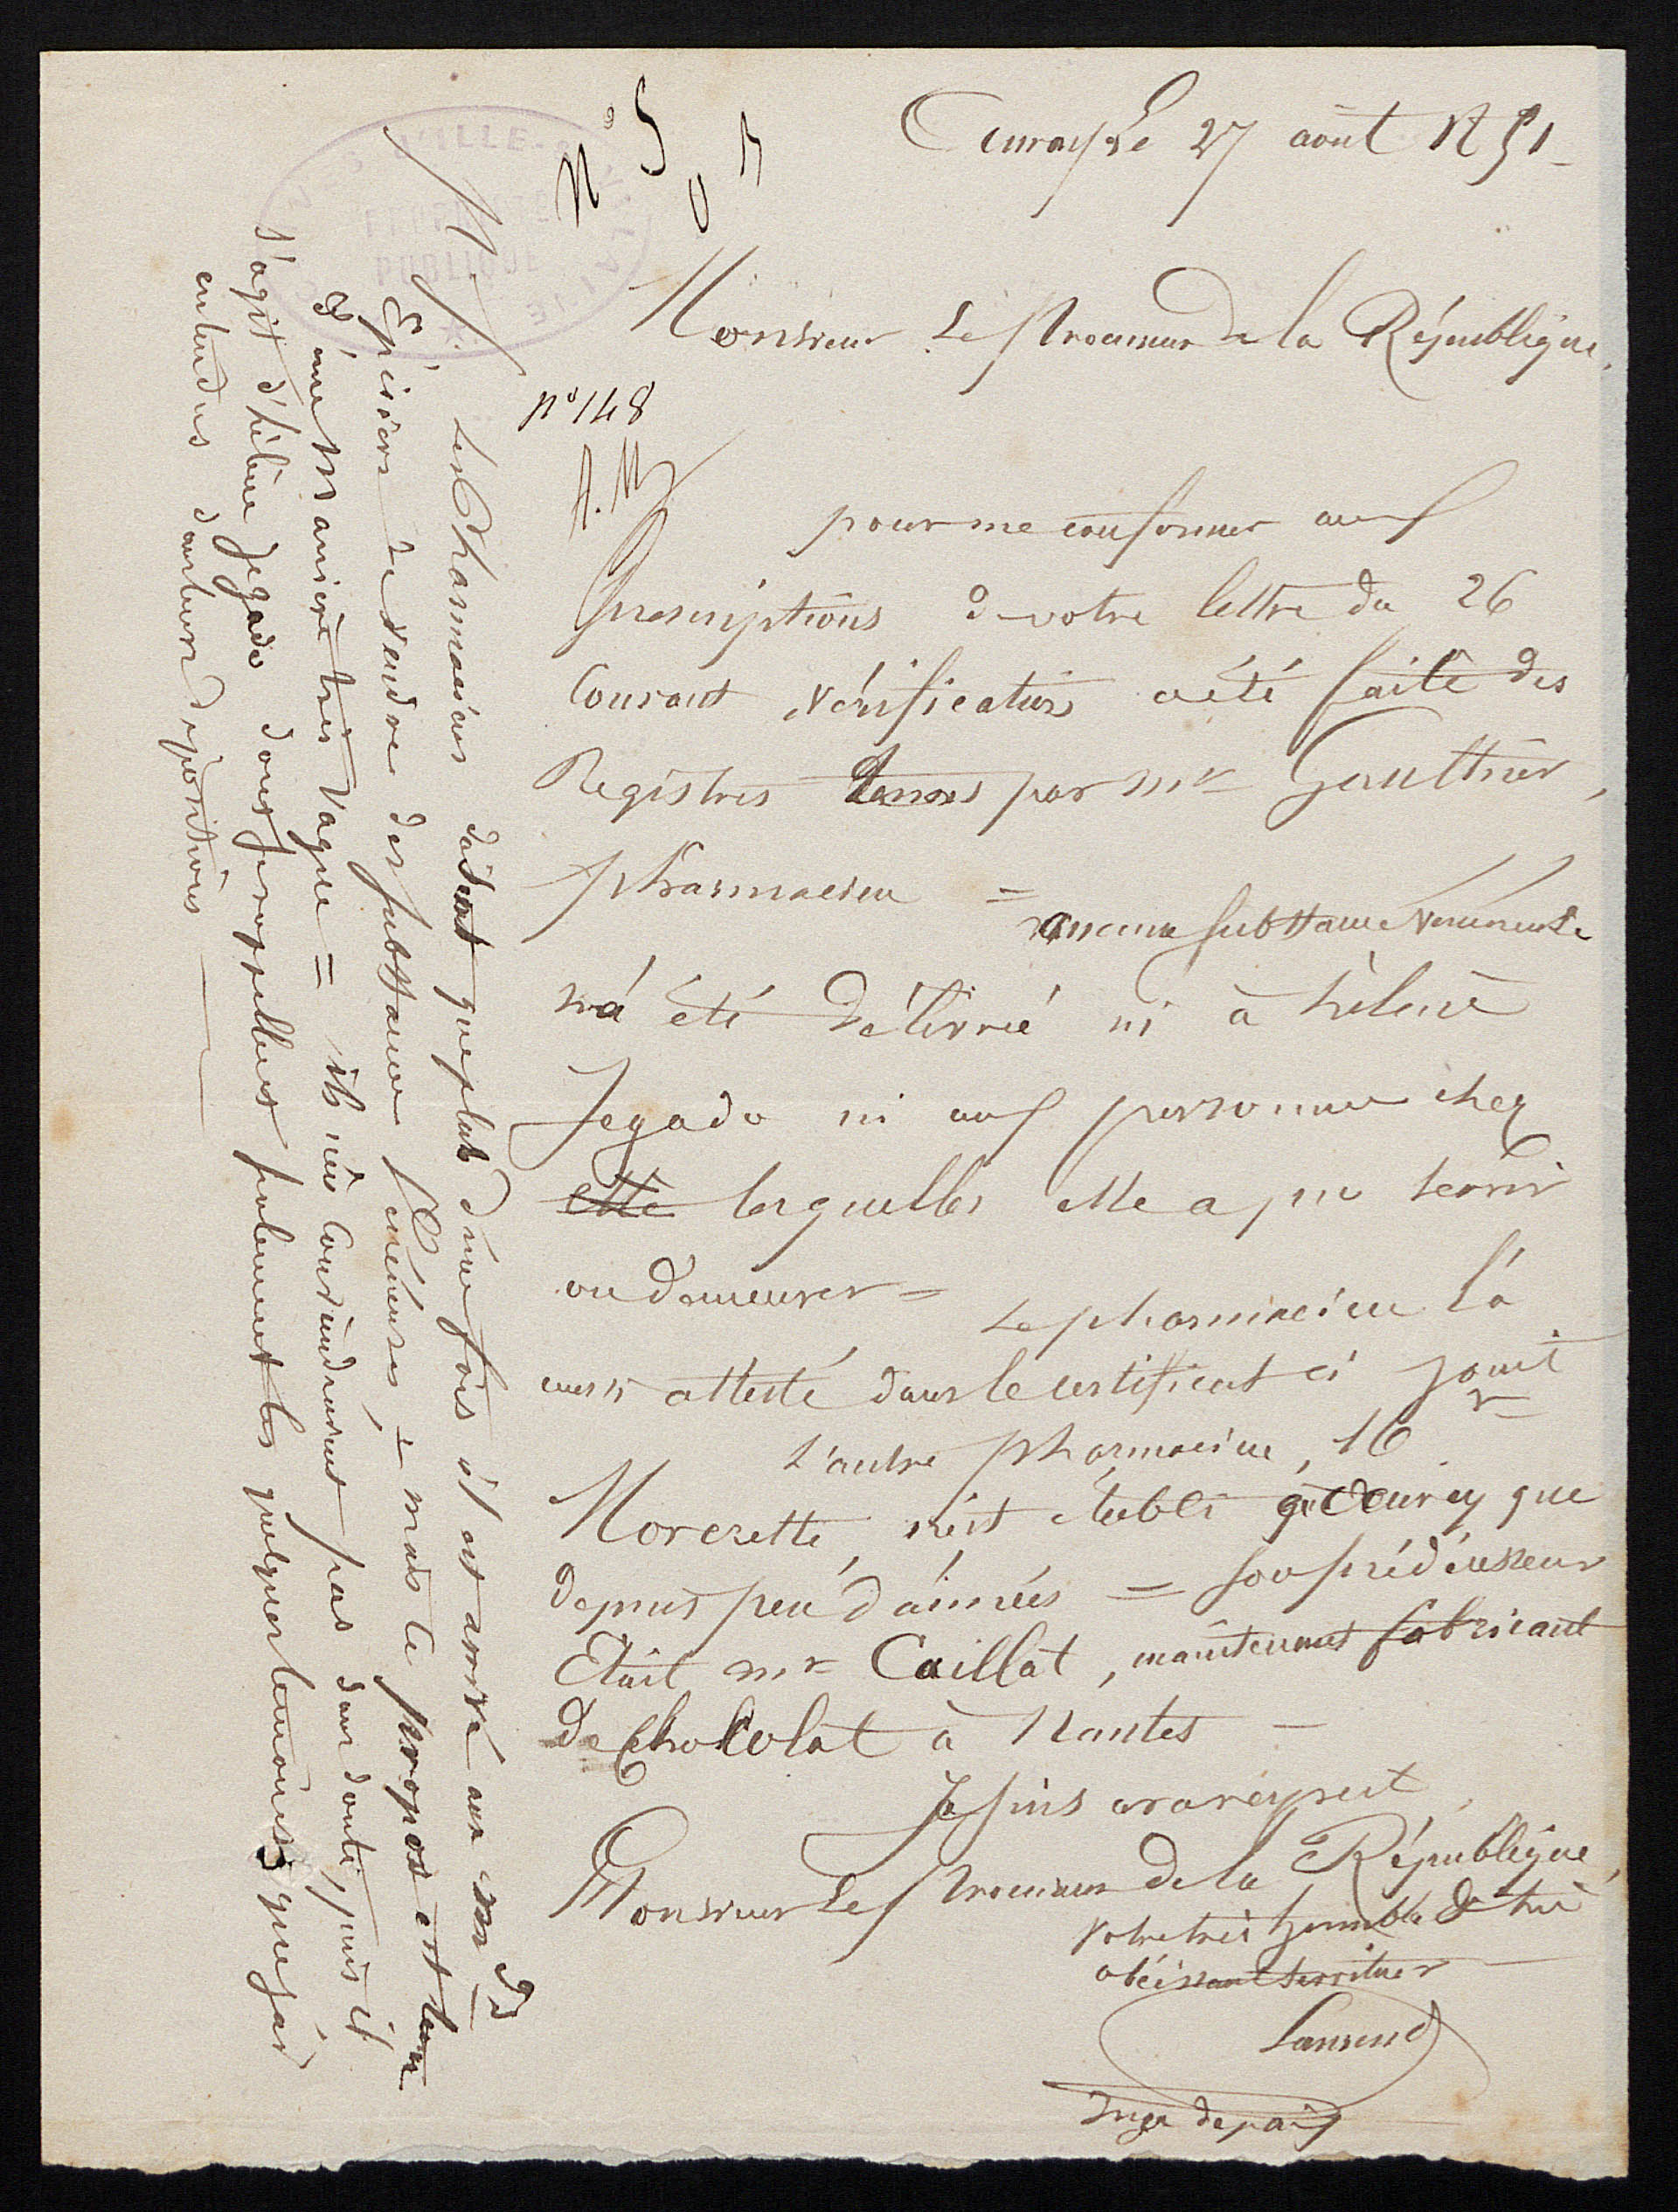 Auray Le 27 août 1851
N° 5
Monsieur Le Procureur de la République,
n° 148
pour me conformer aux
Prescriptions de votre lettre du 26
Courant vérification a été faite des
Registres tenus par mr Gaulthier,
pharmacien = aucune substance Vénéneuse
n'a été délivré ni à hélène
Jegado ni aux personnes chez
elle lesquelles elle a pu servir
ou demeurer = Le pharmacien l'a
aussi attesté dans le certificat ci joint
L'autre pharmacien, Mr
Morezette, n'est établi à Auray que
depuis peu d'années = son prédécesseur
Etait mr Caillat, maintenant fabricant
De Chocolat à Nantes -
Je suis avec respect
Monsieur Le Procureur De la République,
Votre très humble & très
obéissant serviteur
Juge de paix
Les Pharmaciens disent que plus d'une fois il est arrivé aux mds
Epiciers de vendre des substances Vénéneuses, = mais ce propos est tenu
D'une Manière très Vague = ils n'en conviendraient pas sans doute, puis il
s'agit d'hélène jegado dont se rappellent seulement les quelques témoins que j'ai
entendus dans leurs dépositions
D'ILLE-&-VILAINE
PROPRIÉTÉ
PUBLIQUE